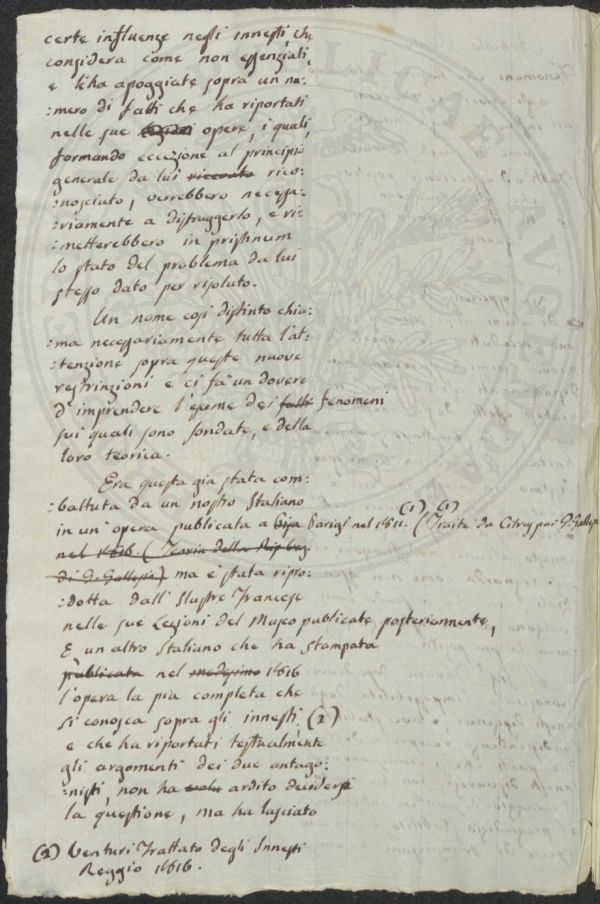 certe influenze negli innesti ch
considera come non essenziali,
e l'ha apoggiate sopra un nu:
:mero di fatti che ha riportati
nelle sue opere, i quali,
formando eccezione al principio
generale da lui rico:
:nosciuto, verrebbero necessa:
:riamente a distruggerlo, e ri:
:metterebbero in pristinum
lo stato del problema da lui
stesso dato per risoluto.
Un nome così distinto chia:
:ma necessariamente tutta l'at:
:tenzione sopra queste nuove
restrinzioni e ci fà un dovere
d'imprendere l'esame dei fatti fenomeni
sui quali sono fondate, e della
loro teorica.
Era questa già stata com:
:battuta da un nostro Italiano
in un'opera publicata a Pisa Parigi nel 1811. (1) (1) (Traité du Citrus par G. Gallesio
nel 1816. (Teoria della Rip. veg.
di G. Gallesio) ma è stata ripro:
:dotta dall'Illustre Francese
nelle sue Lezioni del Museo publicate posteriormente,
E un altro Italiano che ha stampata
publicata nel medesimo 1816
l'opera la più completa che
si conosca sopra gli innesti (2)
e che ha riportati testualmente
gli argomenti dei due antago:
:nisti non ha ardito decidere
la questione, ma ha lasciato
(2) Venturi Trattato degli Innesti
Reggio 1816.